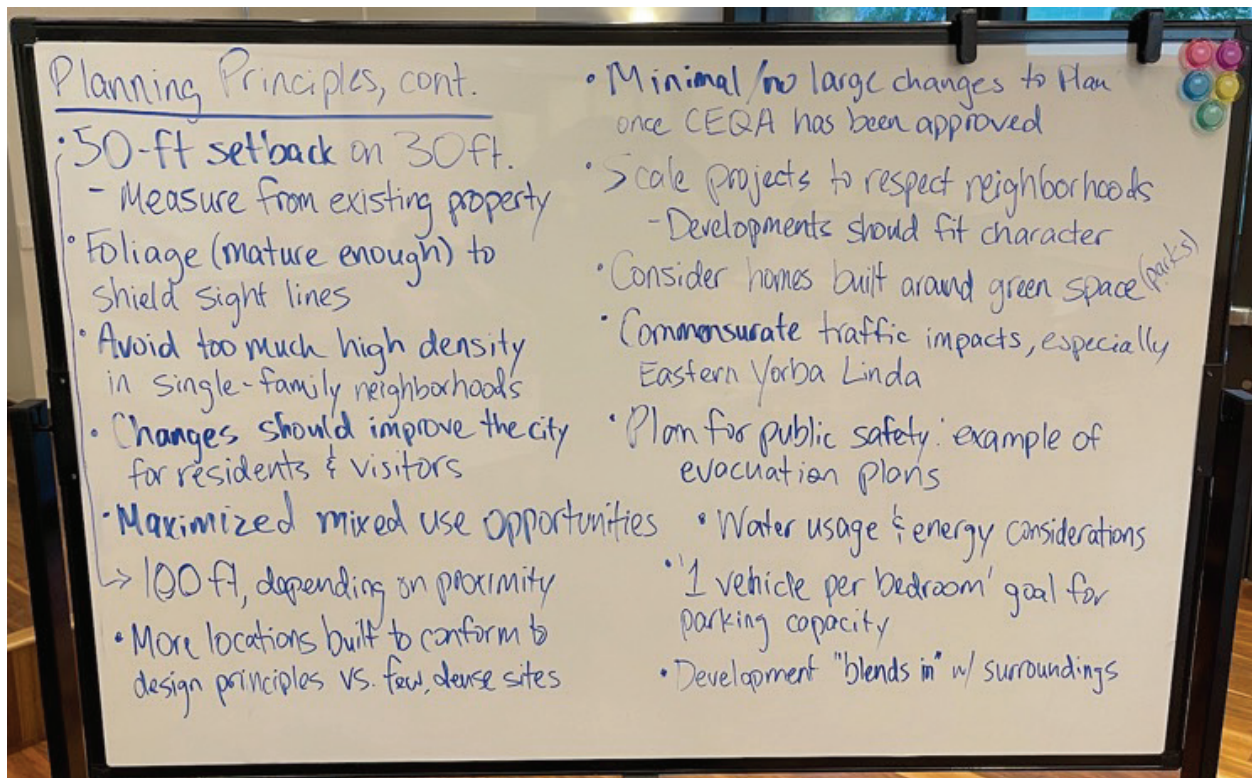 Planning Principles, cont.
• 50-ft setback on 30ft.
- Measure from existing property
• Foliage (mature enough) to
shield sight lines
• Avoid too much high density
in single-family neighborhoods
• Changes should improve the city
for residents & visitors
• Maximized mixed use opportunities
→ 100 ft, depending on proximity
• More locations built to conform to
design principles vs. few, dense sites
• Minimal/no large changes to Plan
once CEQA has been approved
• Scale projects to respect neighborhoods
- Developments should fit character
• Consider homes built around green space (parks)
• Commensurate traffic impacts, especially
Eastern Yorba Linda
• Plan for public safety: example of
evacuation plans
• Water usage & energy considerations
• '1 vehicle per bedroom' goal for
parking capacity
• Development "blends in" w/ surroundings